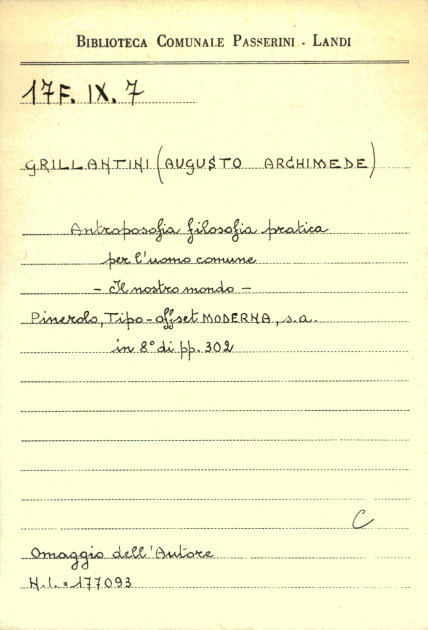 BIBLIOTECA COMUNALE PASSERINI - LANDI
17F. IX. 7
GRILLANTINI (AUGUSTO ARCHIMEDE)
Antroposofia filosofia pratica
per l'uomo comune
- Il nostro mondo -
Pinerolo, Tipo-offset MODERNA, s.a.
in 8° di pp. 302
C
Omaggio dell'Autore
N.I. = 177093